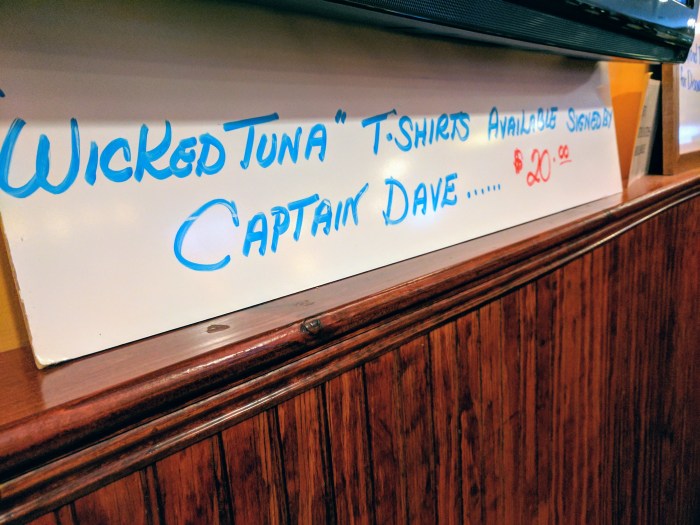 "WICKED TUNA" T-SHIRTS AVAILABLE SIGNED BY
CAPTAIN DAVE...... $20.00